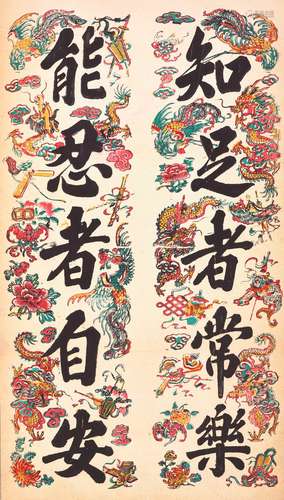 知足者常樂
能忍者自安